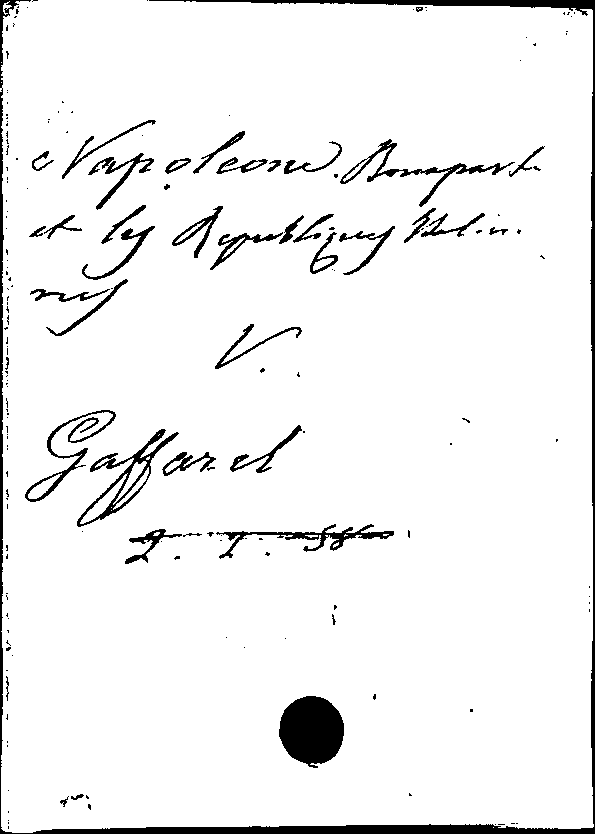 Napoleone Bonaparte
et les Republiques Italien
nes
V.
Gaffarel